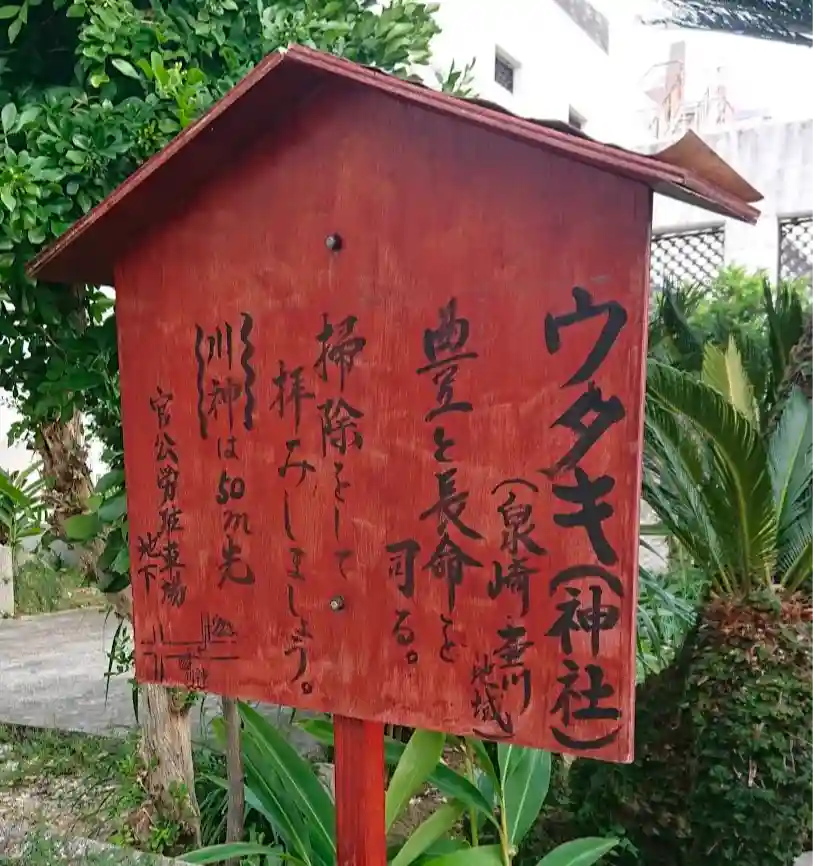 ウタキ(神社)
(泉崎・壷川地域)
豊と長命を
司る。
掃除をして
拝みしましょう。
川神は50m先
官公労駐車場
地下